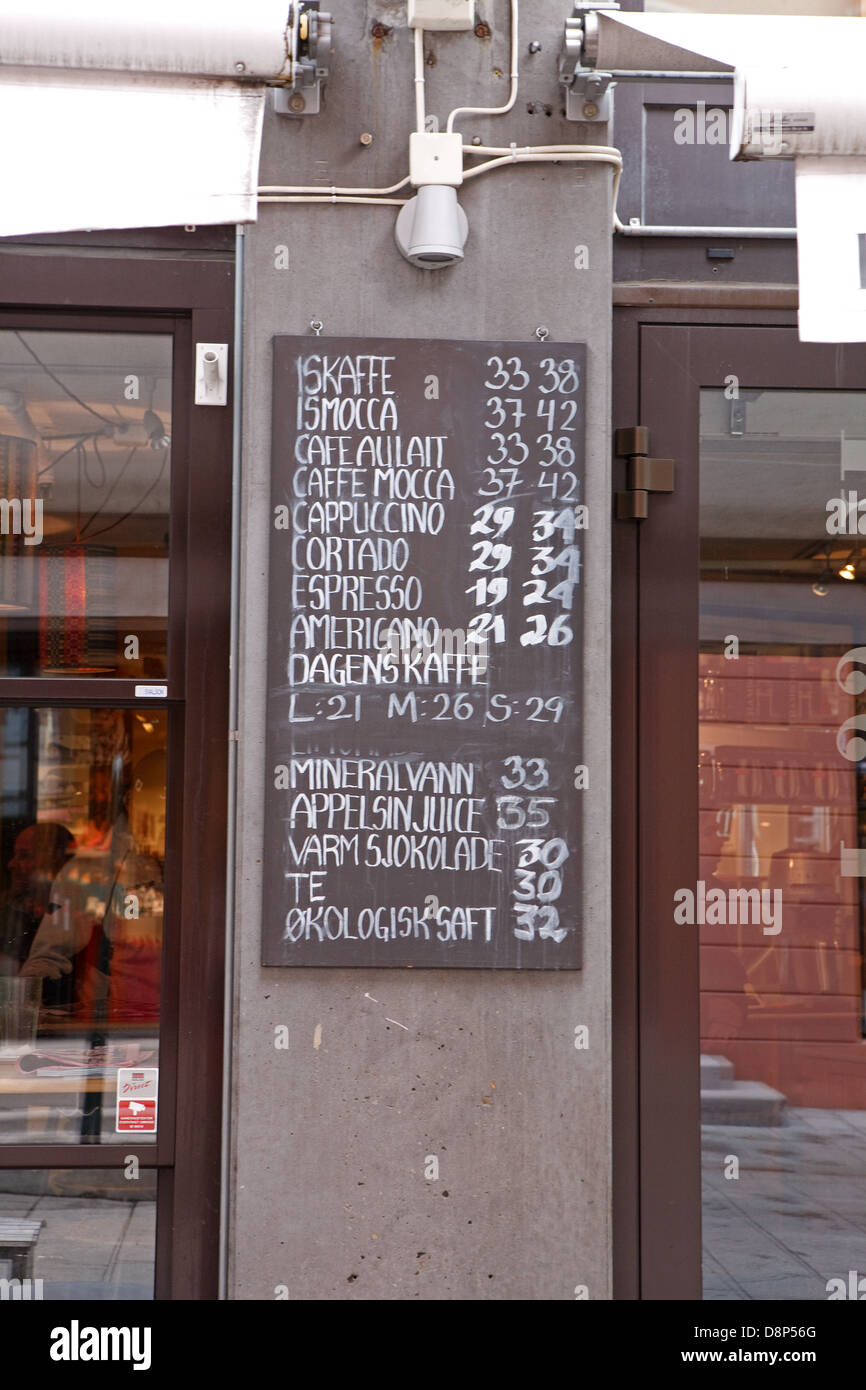 ISKAFFE 33 38
ISMOCCA 37 42
CAFE AU LAIT 33 38
CAFFE MOCCA 37 42
CAPPUCCINO 29 34
CORTADO 29 34
ESPRESSO 19 24
AMERICANO 21 26
DAGENS KAFFE
L:21 M:26 S:29
MINERALVANN 33
APPELSINJUICE 35
VARM SJOKOLADE 30
TE 30
ØKOLOGISK SAFT 32
Direct
alamy
Image ID: D8P56G
www.alamy.com